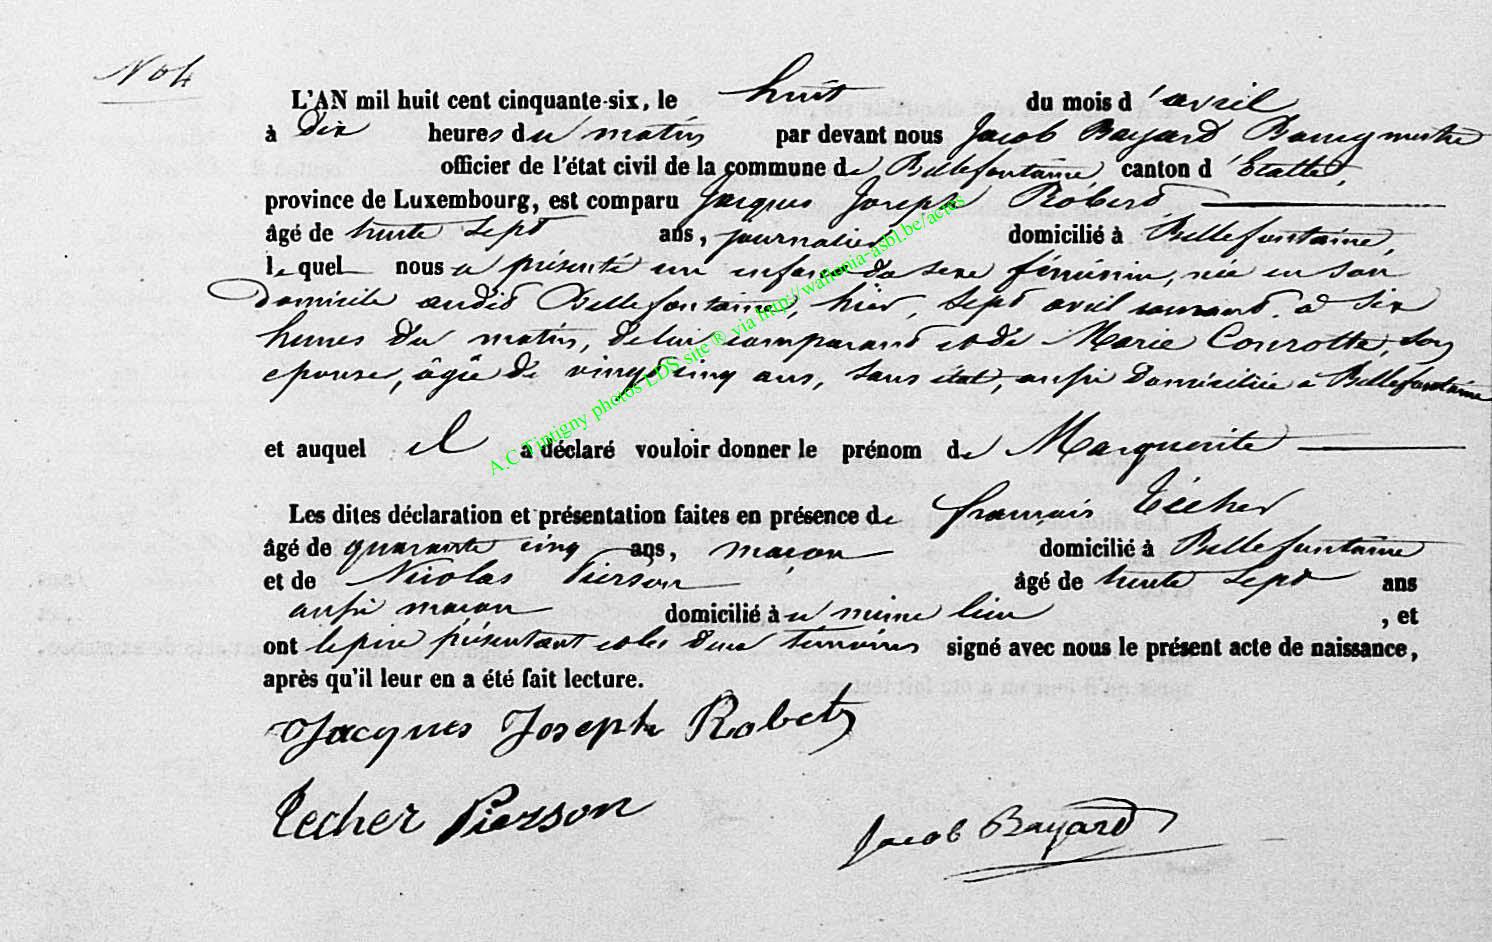 N° 4
L'AN mil huit cent cinquante-six, le huit du mois d'avril
à dix heures du matin par devant nous Jacob Bayard Bourgmestre
officier de l'état civil de la commune de Bellefontaine canton d'Etalle,
province de Luxembourg, est comparu Jacques Joseph Robert
âgé de trente sept ans, journalier domicilié à Bellefontaine,
lequel nous a présenté un enfant du sexe féminin, née en son
domicile audit Bellefontaine, hier, sept avril courant, à six
heures du matin, de lui comparant et de Marie Courotte, son
epouse, âgée de vingt cinq ans, sans état, aussi domiciliée à Bellefontaine
et auquel il a déclaré vouloir donner le prénom de Marguerite
Les dites déclaration et présentation faites en présence de françois Técher
âgé de quarante cinq ans, maçon domicilié à Bellefontaine
et de Nicolas Pierson âgé de trente sept ans
aussi maçon domicilié à u même lieu , et
ont le père présentant et les deux témoins signé avec nous le présent acte de naissance,
après qu'il leur en a été fait lecture.
Jacques Joseph Robert
Techer Pierson
Jacob Bayard
A.C Tintigny photos LDS site ® via http://wallonia-asbl.be/actes